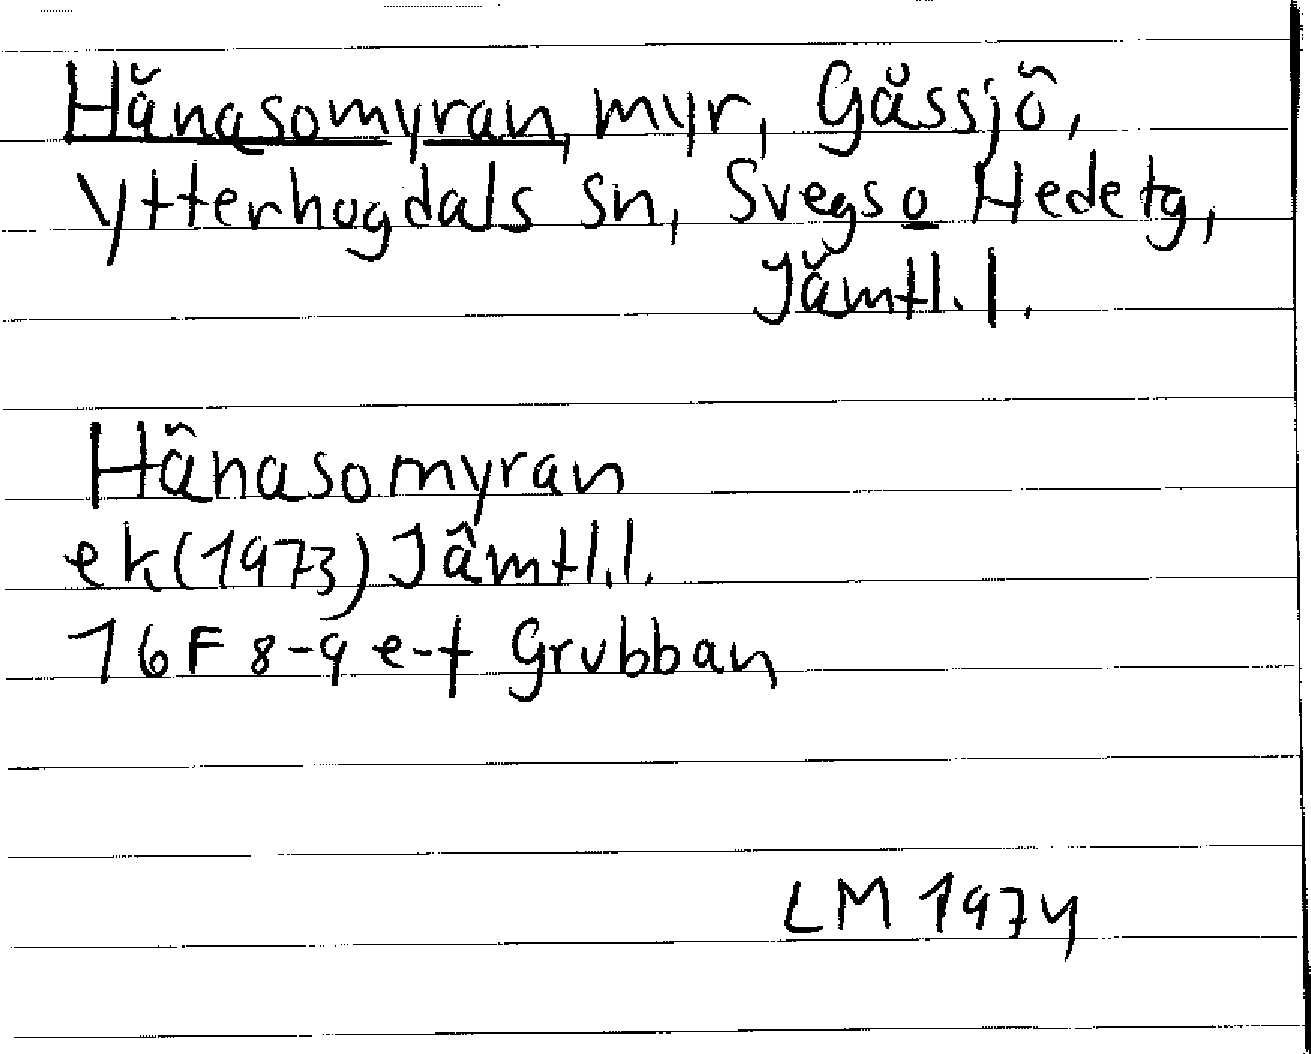 Hänasomyran, myr, Gässjö,
Ytterhogdals sn, Svegs o Hede tg,
Jämtl. l.
Hänasomyran
ek (1973) Jämtl. l.
16 F 8-9 e-f Grubban
LM 1974